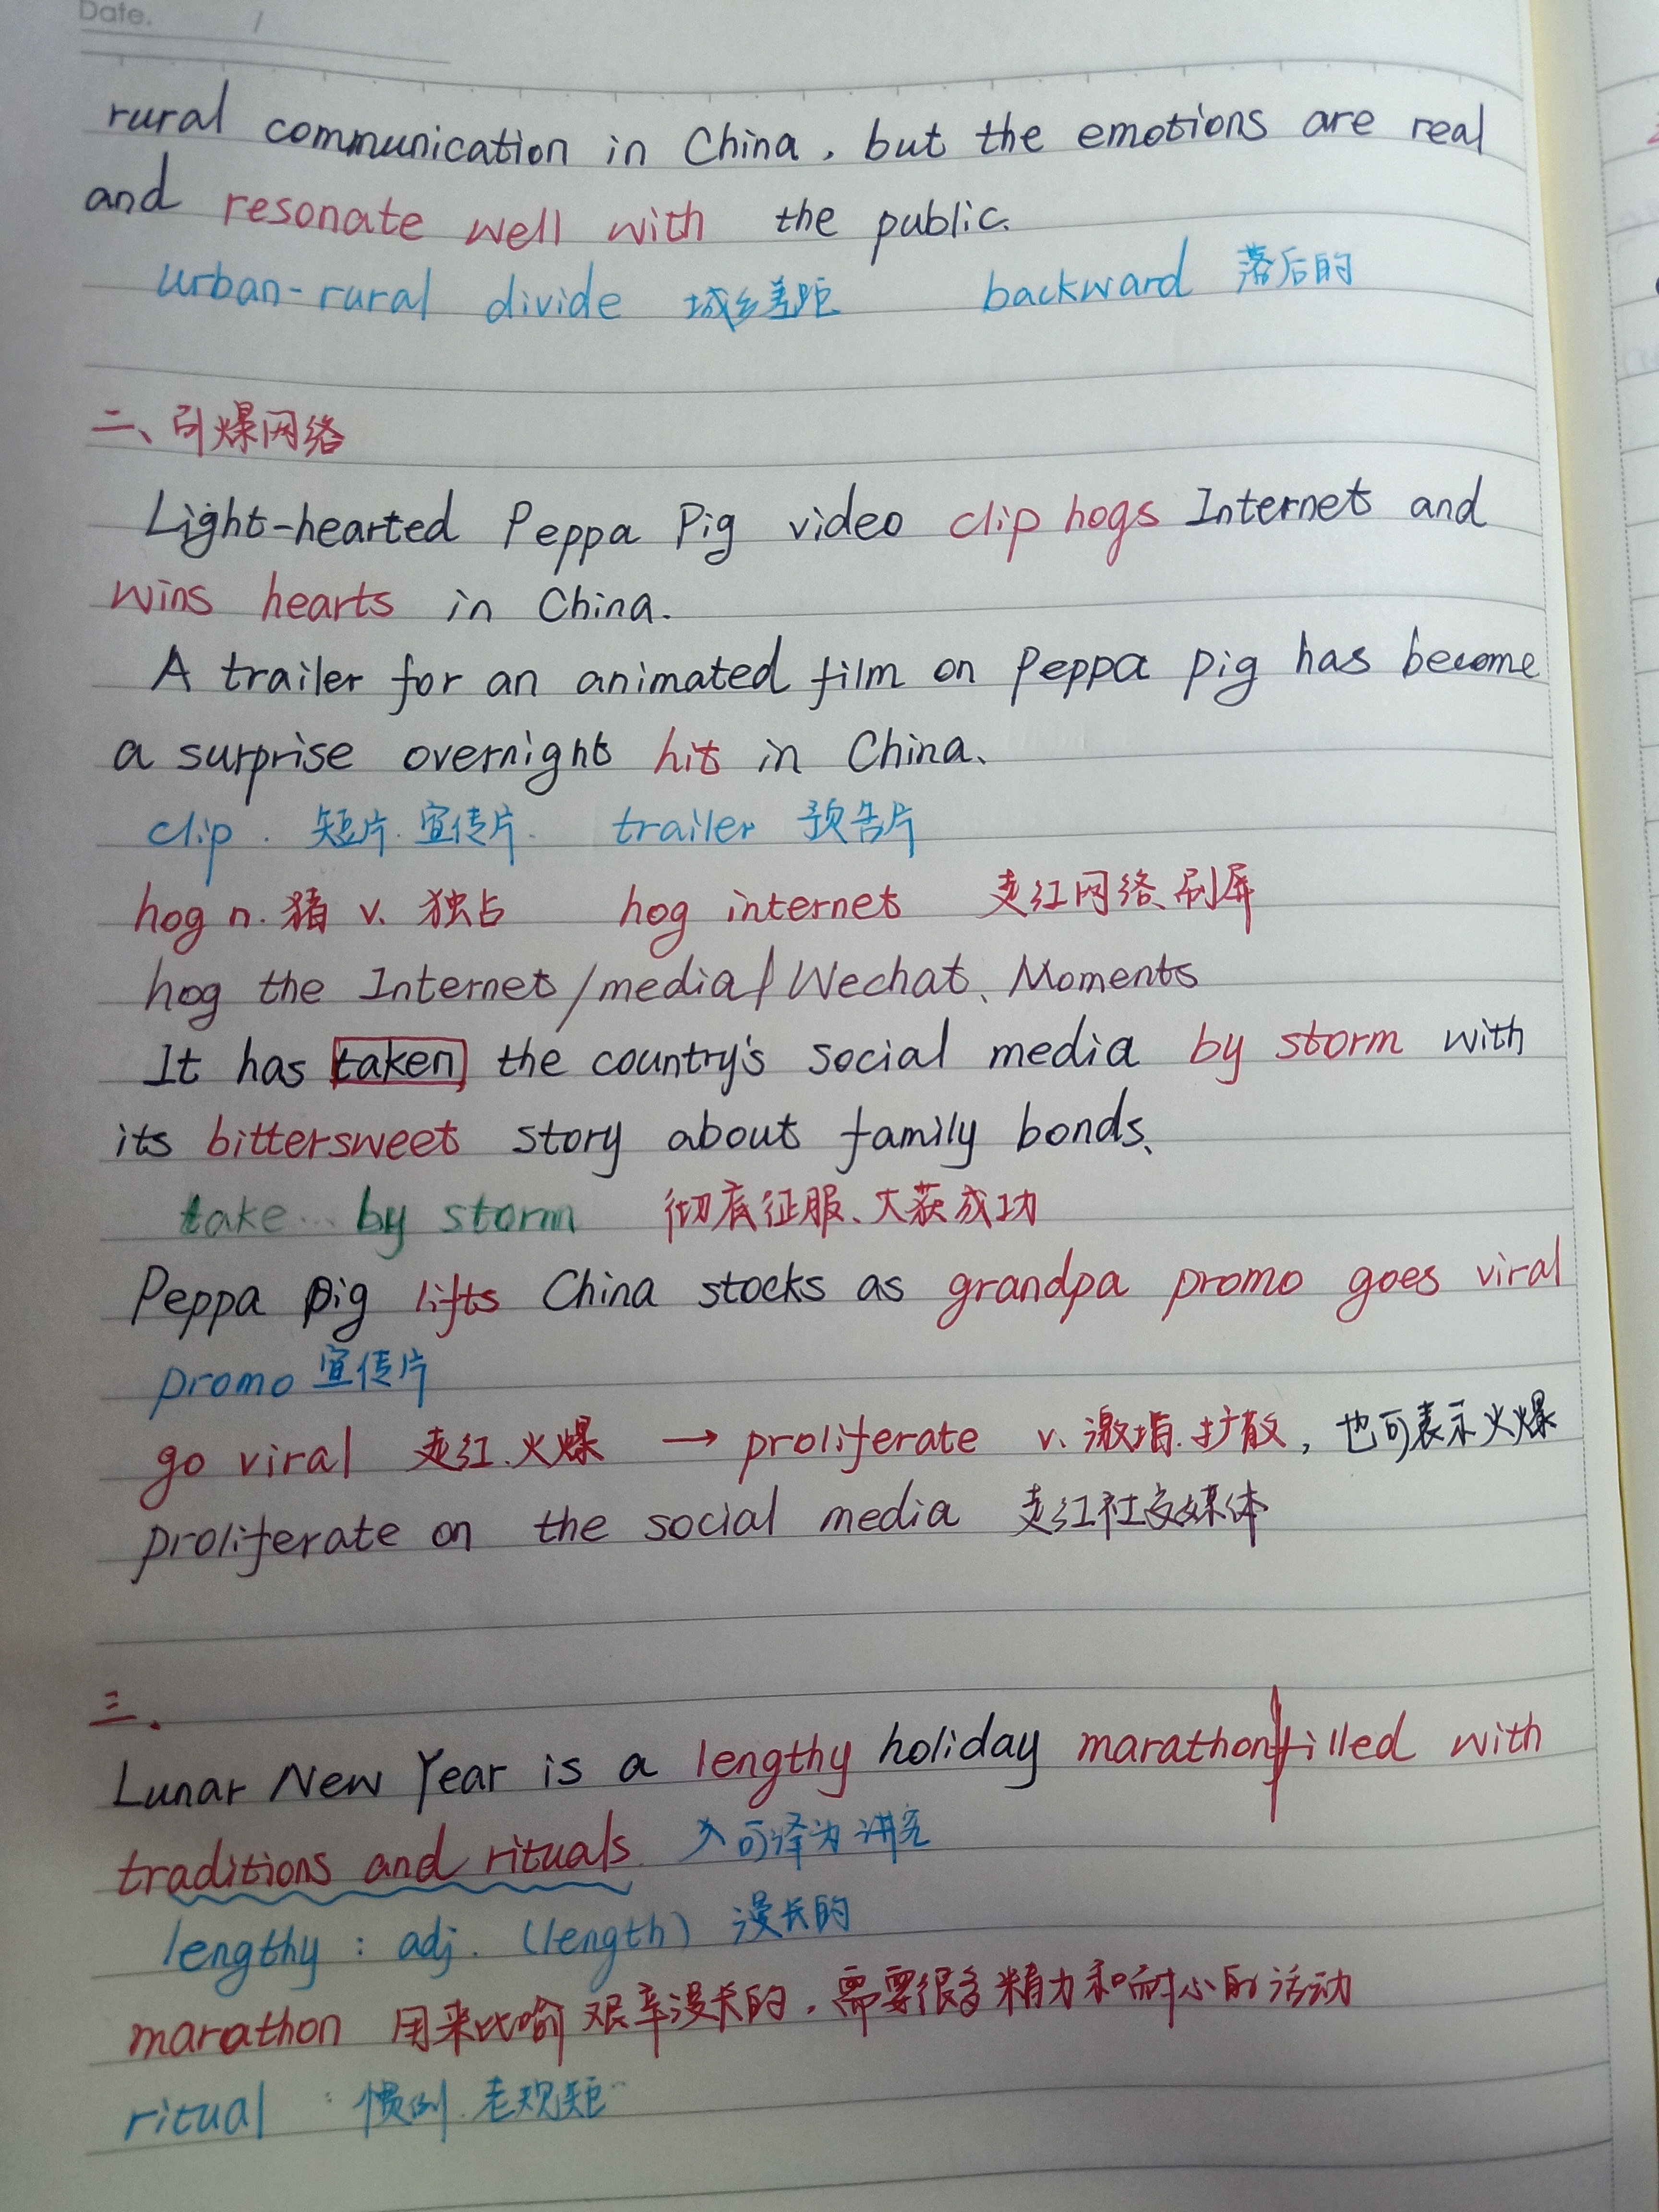 Date. /
rural communication in China, but the emotions are real
and resonate well with the public.
urban-rural divide 城乡差距 backward 落后的
二、引爆网络
Light-hearted Peppa Pig video clip hogs Internet and
wins hearts in China.
A trailer for an animated film on Peppa pig has become
a surprise overnight hit in China、
clip . 短片.宣传片. trailer 预告片
hog n.猪 v. 独占 hog internet 走红网络、刷屏
hog the Internet/media/Wechat、Moments
It has taken the country's social media by storm with
its bittersweet story about family bonds、
take... by storm 彻底征服、大获成功
Peppa Pig lifts China stocks as grandpa promo goes viral
promo 宣传片
go viral 走红.火爆 → proliferate v. 激增.扩散, 也可表示火爆
proliferate on the social media 走红社交媒体
三.
Lunar New Year is a lengthy holiday marathon filled with
traditions and rituals. 可译为讲究
lengthy : adj. (length) 漫长的
marathon 用来比喻艰辛漫长的,需要很多精力和耐心的活动
ritual : 惯例.老规矩